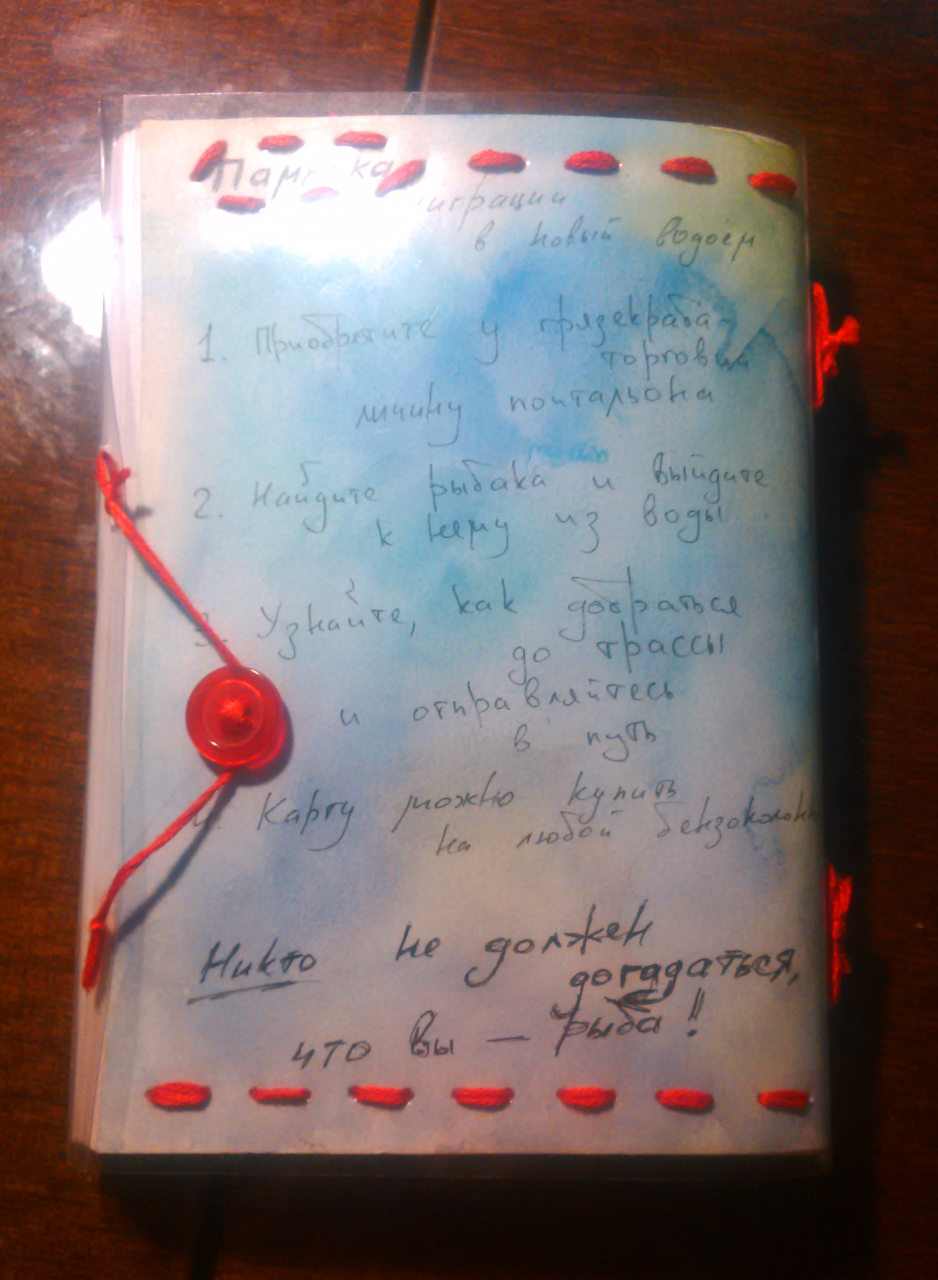 Памятка
миграции
в новый водоём
1. Приобретите у грязекраба-
торговца
личину почтальона
2. Найдите рыбака и выйдите
к нему из воды.
3. Узнайте, как добраться
до трассы
и отправляйтесь
в путь
4. Карту можно купить
на любой бензоколонке
Никто не должен
догадаться,
что вы — рыба!!